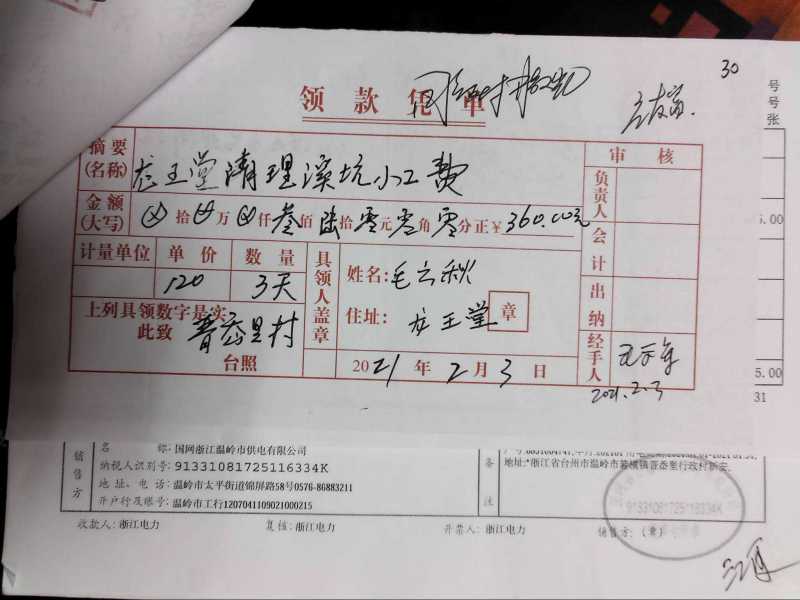 30
领款凭单
号
号
张
摘要
(名称)
龙王堂清理溪坑小工费
审核
金额
(大写)
拾 万 仟叁佰陆拾零元零角零分正¥360.00元
负责人
会计
出纳
经手人
计量单位 单价 数量
120 3天
具领人盖章
姓名:毛云秋
住址:龙王堂 章
上列具领数字是实
此致 普岙里村
台照
2021年2月3日
2021.2.3
5.00
5.00
31
销售方
名 称:国网浙江温岭市供电有限公司
纳税人识别号:91331081725116334K
地址、电话:温岭市太平街道锦屏路58号0576-86883211
开户行及账号:温岭市工行1207041109021000215
备注
收款人:浙江电力 复核:浙江电力 开票人:浙江电力 销售方:(章)
91331081725116334K